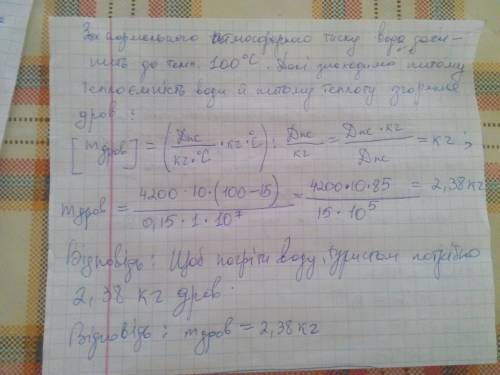 За нормального атмосферного тиску вода закі-
пить до темп. 100°С. Далі знаходимо питому
теплоємність води й питому теплоту згоряння
дров:
[mдров] = (Дж/кг·°С · кг·°С) : Дж/кг = Дж·кг/Дж = кг;
mдров = 4200·10·(100-15)/0,15·1·10⁷ = 4200·10·85/15·10⁵ = 2,38кг
Відповідь: Щоб погріти воду, туристам потрібно
2,38 кг дров.
Відповідь: mдров = 2,38кг